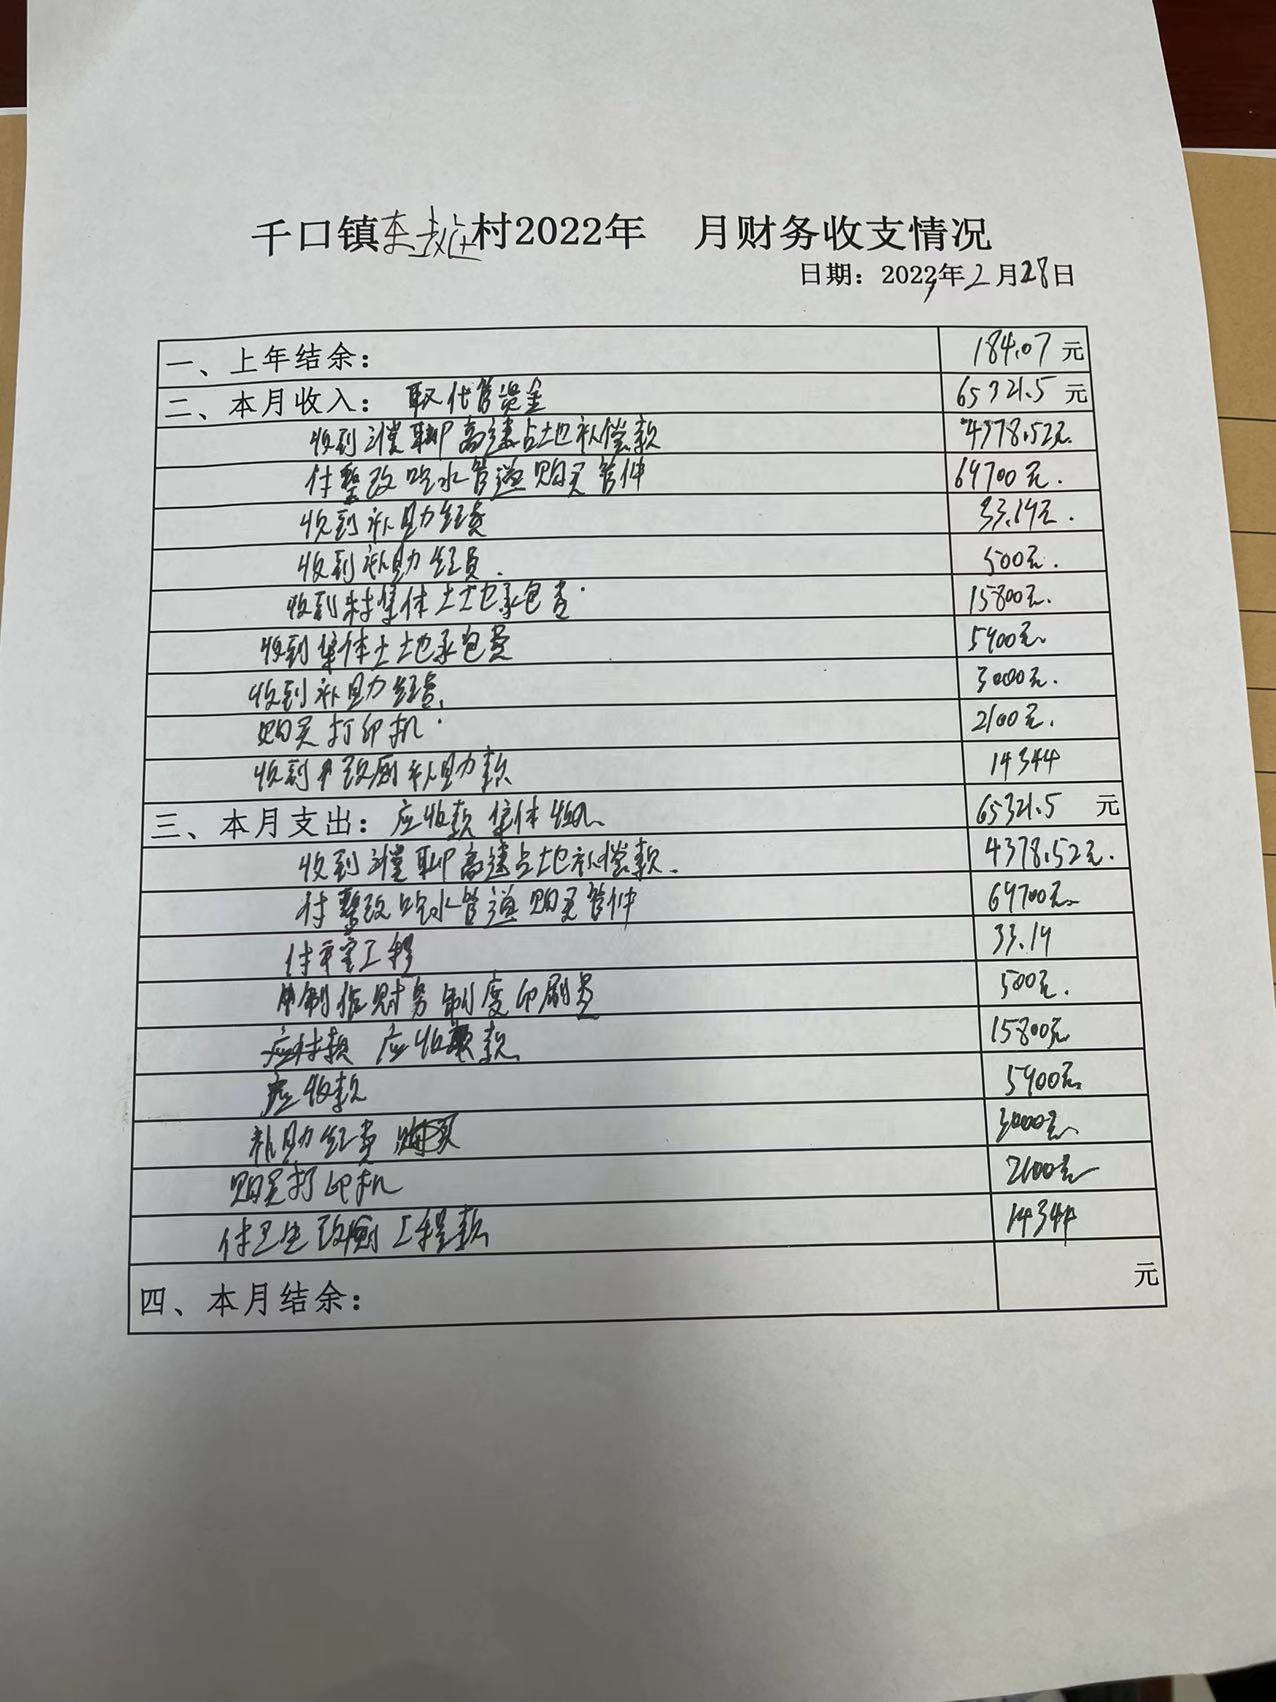 千口镇东赵庄村2022年 月财务收支情况
日期：2022年2月28日
一、上年结余： 184.07 元
二、本月收入： 取代管资金 65321.5 元
收到濮聊高速占地补偿款 4378.52元.
付整改吃水管道购买管件 69700元.
收到补助经费 33.14元.
收到补助经费. 500元.
收到村集体土地承包费. 15800元.
收到集体土地承包费 5900元.
收到补助经费. 3000元.
购买打印机. 2100元.
收到户改厕补助款 14344
三、本月支出：应收款 集体 65321.5 元
收到濮聊高速占地补偿款. 4378.52元.
付整改吃水管道购买管件 69700元
付工程 33.14
制作财务制度印刷费 500元.
应付款 应收款 15800元
应收款 5900元
补助经费 购买 3000元
购买打印机 2100元
付卫生改厕工程款 14344
四、本月结余： 元